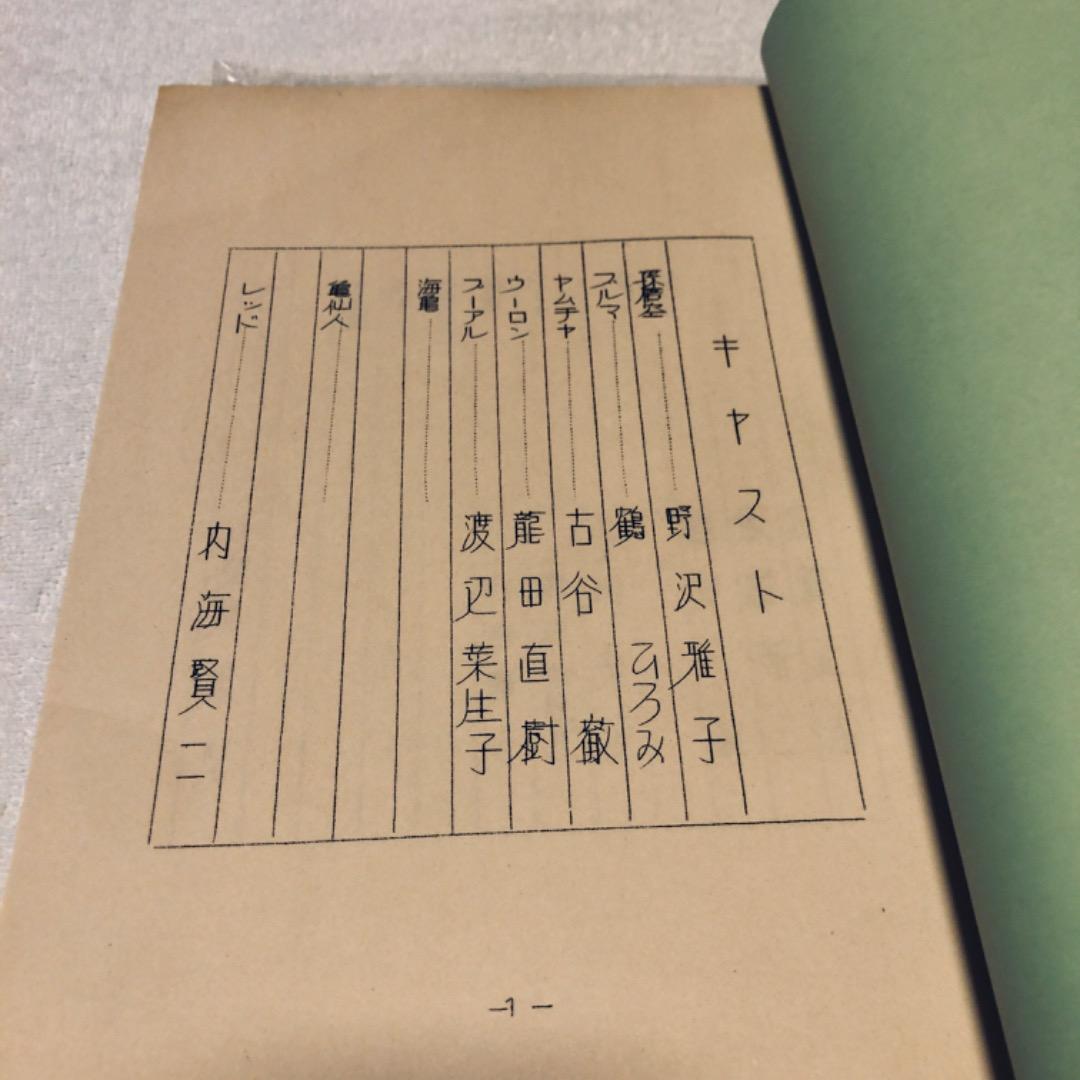 キャスト
孫悟空………野沢雅子
ブルマ………鶴 ひろみ
ヤムチャ………古谷 徹
ウーロン………龍田直樹
プーアル………渡辺菜生子
海亀………
亀仙人………
レッド………内海賢二
—1—